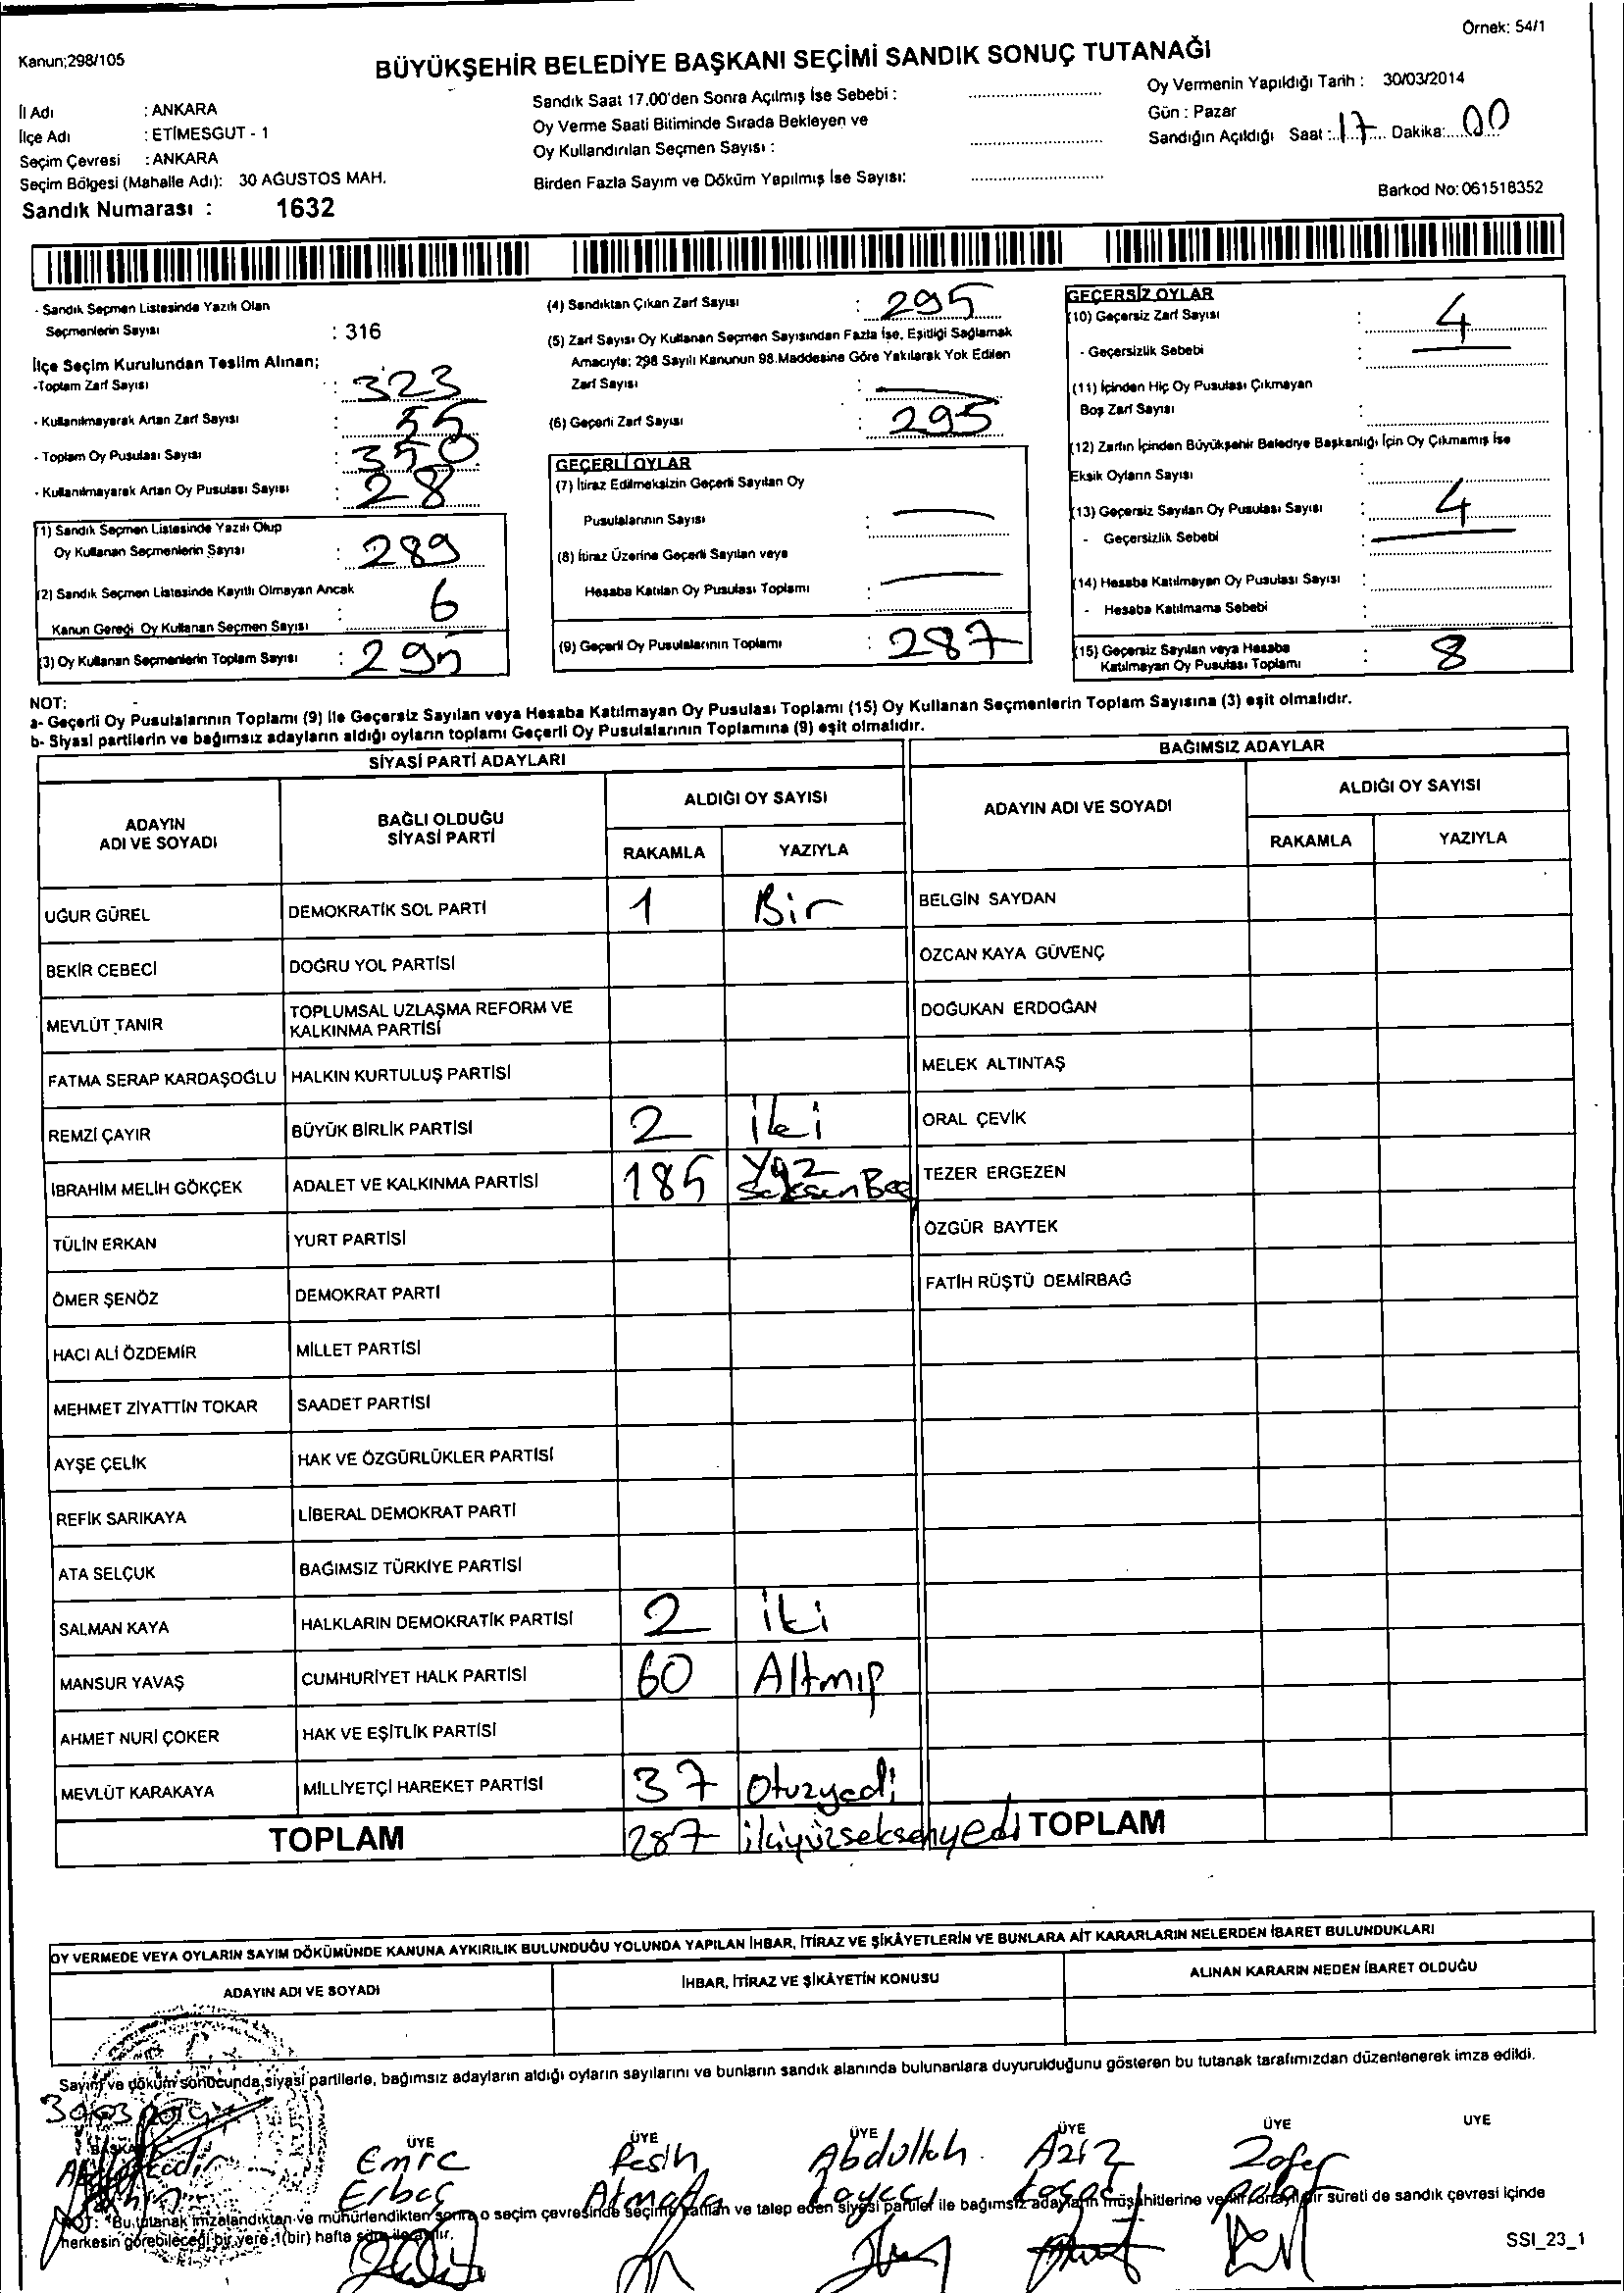 Örnek: 54/1
Kanun;298/105
BÜYÜKŞEHİR BELEDİYE BAŞKANI SEÇİMİ SANDIK SONUÇ TUTANAĞI
İl Adı : ANKARA
İlçe Adı : ETİMESGUT - 1
Seçim Çevresi : ANKARA
Seçim Bölgesi (Mahalle Adı): 30 AĞUSTOS MAH.
Sandık Numarası : 1632
Sandık Saat 17.00'den Sonra Açılmış İse Sebebi :
Oy Verme Saati Bitiminde Sırada Bekleyen ve
Oy Kullandırılan Seçmen Sayısı :
Birden Fazla Sayım ve Döküm Yapılmış İse Sayısı:
Oy Vermenin Yapıldığı Tarih : 30/03/2014
Gün : Pazar
Sandığın Açıldığı Saat : 17 Dakika: 00
Barkod No: 061518352
- Sandık Seçmen Listesinde Yazılı Olan
Seçmenlerin Sayısı : 316
İlçe Seçim Kurulundan Teslim Alınan;
-Toplam Zarf Sayısı : 323
- Kullanılmayarak Artan Zarf Sayısı : 55
- Toplam Oy Pusulası Sayısı : 350
- Kullanılmayarak Artan Oy Pusulası Sayısı : 28
(1) Sandık Seçmen Listesinde Yazılı Olup
Oy Kullanan Seçmenlerin Sayısı : 289
(2) Sandık Seçmen Listesinde Kayıtlı Olmayan Ancak
Kanun Gereği Oy Kullanan Seçmen Sayısı : 6
(3) Oy Kullanan Seçmenlerin Toplam Sayısı : 295
(4) Sandıktan Çıkan Zarf Sayısı : 295
(5) Zarf Sayısı Oy Kullanan Seçmen Sayısından Fazla İse, Eşitliği Sağlamak
Amacıyla; 298 Sayılı Kanunun 98.Maddesine Göre Yakılarak Yok Edilen
Zarf Sayısı : —
(6) Geçerli Zarf Sayısı : 295
GEÇERLİ OYLAR
(7) İtiraz Edilmeksizin Geçerli Sayılan Oy
Pusulalarının Sayısı : —
(8) İtiraz Üzerine Geçerli Sayılan veya
Hesaba Katılan Oy Pusulası Toplamı : —
(9) Geçerli Oy Pusulalarının Toplamı : 287
GEÇERSİZ OYLAR
(10) Geçersiz Zarf Sayısı : 4
- Geçersizlik Sebebi : —
(11) İçinden Hiç Oy Pusulası Çıkmayan
Boş Zarf Sayısı :
(12) Zarfın İçinden Büyükşehir Belediye Başkanlığı İçin Oy Çıkmamış İse
Eksik Oyların Sayısı :
(13) Geçersiz Sayılan Oy Pusulası Sayısı : 4
- Geçersizlik Sebebi : —
(14) Hesaba Katılmayan Oy Pusulası Sayısı :
- Hesaba Katılmama Sebebi :
(15) Geçersiz Sayılan veya Hesaba
Katılmayan Oy Pusulası Toplamı : 8
NOT:
a- Geçerli Oy Pusulalarının Toplamı (9) ile Geçersiz Sayılan veya Hesaba Katılmayan Oy Pusulası Toplamı (15) Oy Kullanan Seçmenlerin Toplam Sayısına (3) eşit olmalıdır.
b- Siyasi partilerin ve bağımsız adayların aldığı oyların toplamı Geçerli Oy Pusulalarının Toplamına (9) eşit olmalıdır.
SİYASİ PARTİ ADAYLARI
ADAYIN ADI VE SOYADI
BAĞLI OLDUĞU SİYASİ PARTİ
ALDIĞI OY SAYISI
RAKAMLA YAZIYLA
UĞUR GÜREL DEMOKRATİK SOL PARTİ 1 Bir
BEKİR CEBECİ DOĞRU YOL PARTİSİ
MEVLÜT TANIR TOPLUMSAL UZLAŞMA REFORM VE KALKINMA PARTİSİ
FATMA SERAP KARDAŞOĞLU HALKIN KURTULUŞ PARTİSİ
REMZİ ÇAYIR BÜYÜK BİRLİK PARTİSİ 2 iki
İBRAHİM MELİH GÖKÇEK ADALET VE KALKINMA PARTİSİ 185 Yüz Seksen Beş
TÜLİN ERKAN YURT PARTİSİ
ÖMER ŞENÖZ DEMOKRAT PARTİ
HACI ALİ ÖZDEMİR MİLLET PARTİSİ
MEHMET ZİYATTİN TOKAR SAADET PARTİSİ
AYŞE ÇELİK HAK VE ÖZGÜRLÜKLER PARTİSİ
REFİK SARIKAYA LİBERAL DEMOKRAT PARTİ
ATA SELÇUK BAĞIMSIZ TÜRKİYE PARTİSİ
SALMAN KAYA HALKLARIN DEMOKRATİK PARTİSİ 2 iki
MANSUR YAVAŞ CUMHURİYET HALK PARTİSİ 60 Altmış
AHMET NURİ ÇOKER HAK VE EŞİTLİK PARTİSİ
MEVLÜT KARAKAYA MİLLİYETÇİ HAREKET PARTİSİ 37 Otuzyedi
TOPLAM 287 ikiyüzseksenyedi
BAĞIMSIZ ADAYLAR
ADAYIN ADI VE SOYADI
ALDIĞI OY SAYISI
RAKAMLA YAZIYLA
BELGİN SAYDAN
ÖZCAN KAYA GÜVENÇ
DOĞUKAN ERDOĞAN
MELEK ALTINTAŞ
ORAL ÇEVİK
TEZER ERGEZEN
ÖZGÜR BAYTEK
FATİH RÜŞTÜ DEMİRBAĞ
TOPLAM
OY VERMEDE VEYA OYLARIN SAYIM DÖKÜMÜNDE KANUNA AYKIRILIK BULUNDUĞU YOLUNDA YAPILAN İHBAR, İTİRAZ VE ŞİKÂYETLERİN VE BUNLARA AİT KARARLARIN NELERDEN İBARET BULUNDUKLARI
ADAYIN ADI VE SOYADI İHBAR, İTİRAZ VE ŞİKÂYETİN KONUSU ALINAN KARARIN NEDEN İBARET OLDUĞU
Sayım ve döküm sonucunda,siyasi partilerle, bağımsız adayların aldığı oyların sayılarını ve bunların sandık alanında bulunanlara duyurulduğunu gösteren bu tutanak tarafımızdan düzenlenerek imza edildi.
BAŞKAN ÜYE ÜYE ÜYE ÜYE ÜYE ÜYE
Emre Abdullah Aziz Zafer
NOT: Bu tutanak imzalandıktan ve mühürlendikten sonra o seçim çevresinde seçime katılan ve talep eden siyasi partiler ile bağımsız adayların müşahitlerine verilir. bir sureti de sandık çevresi içinde
herkesin görebileceği bir yere 1(bir) hafta süre ile asılır.
SSI_23_1